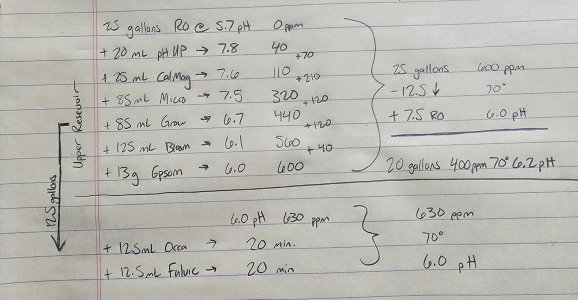 25 gallons RO @ 5.7 pH 0 ppm
+ 20 mL pH UP → 7.8 40
+70
+ 25 mL CalMag → 7.6 110
+210
+ 85 mL Micro → 7.5 320
+120
+ 85 mL Grow → 6.7 440
+120
+ 125 mL Bloom → 6.1 560
+40
+ 13g Epsom → 6.0 600
Upper Reservoir
12.5 gallons
25 gallons 600 ppm
- 12.5 ↓ 70°
+ 7.5 RO 6.0 pH
20 gallons 400ppm 70° 6.2 pH
6.0 pH 630 ppm
+ 125mL Orca → 20 min.
+ 12.5mL Fulvic → 20 min
630 ppm
70°
6.0 pH